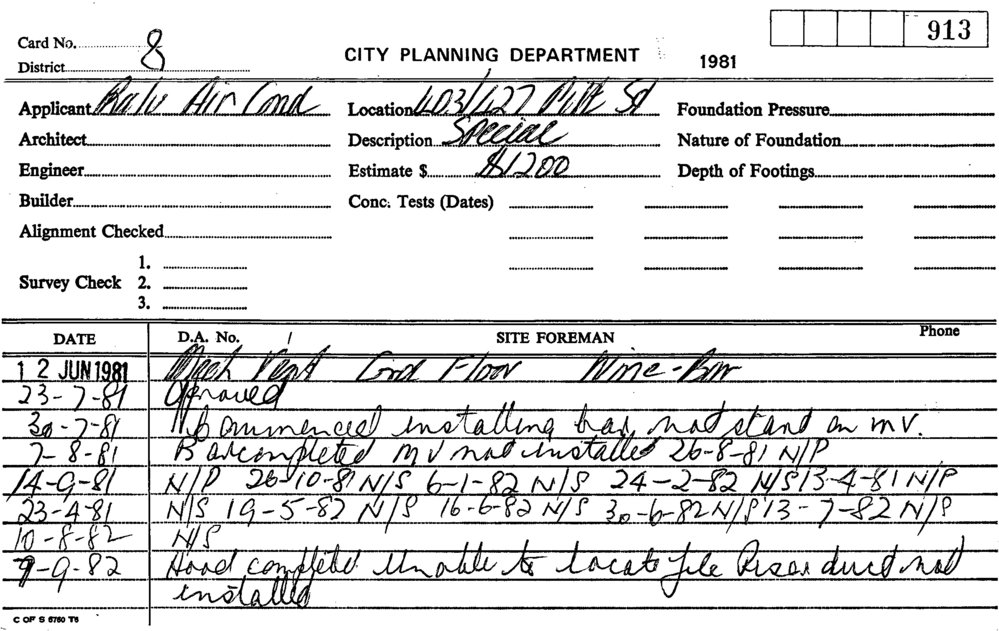 913
Card No. 8
District
CITY PLANNING DEPARTMENT 1981
Applicant Air Cond Location 403/427 Pitt St Foundation Pressure
Architect Description Special Nature of Foundation
Engineer Estimate $ $1200 Depth of Footings
Builder Conc. Tests (Dates)
Alignment Checked
1.
Survey Check 2.
3.
DATE D.A. No. SITE FOREMAN Phone
12 JUN 1981 Mech Vent Grd Floor Wine-Bar
23-7-81 Approved
30-7-81 commenced installing bar, not stand on m v.
7-8-81 Bar completed m v not installed 26-8-81 N/P
14-9-81 N/P 26-10-81 N/S 6-1-82 N/S 24-2-82 N/S 13-4-81 N/P
23-4-81 N/S 19-5-82 N/S 16-6-82 N/S 30-6-82 N/P 13-7-82 N/P
10-8-82 N/S
9-9-82 Hood completed Unable to locate file Riser duct not
installed
C OF S 5760 T6